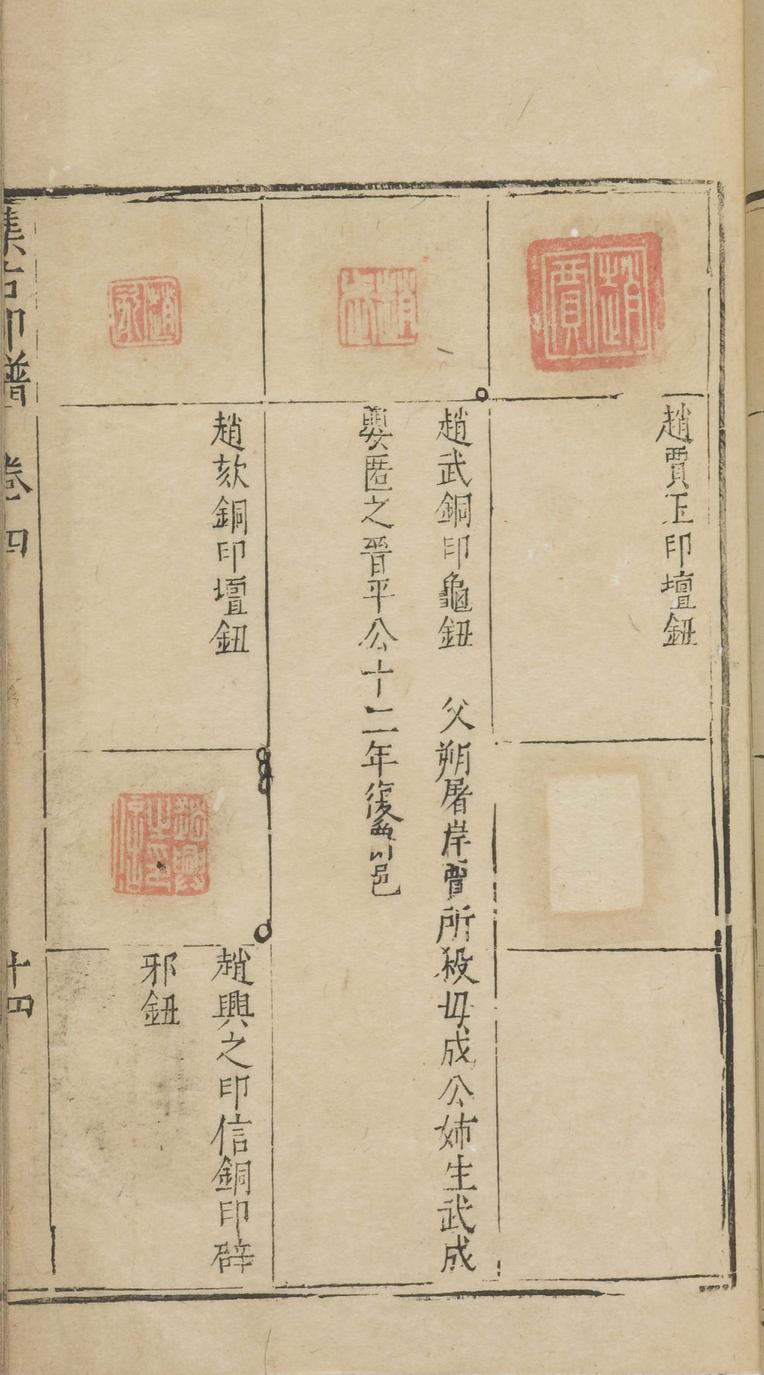 趙賈
趙賈玉印壇鈕
趙武
趙武銅印龜鈕 父朔屠岸賈所殺母成公姉生武成
嬰匿之晉平公十二年復與邑
趙欬
趙欬銅印壇鈕
趙興之印信
趙興之印信銅印辟
邪鈕
集古印譜 卷四 十四